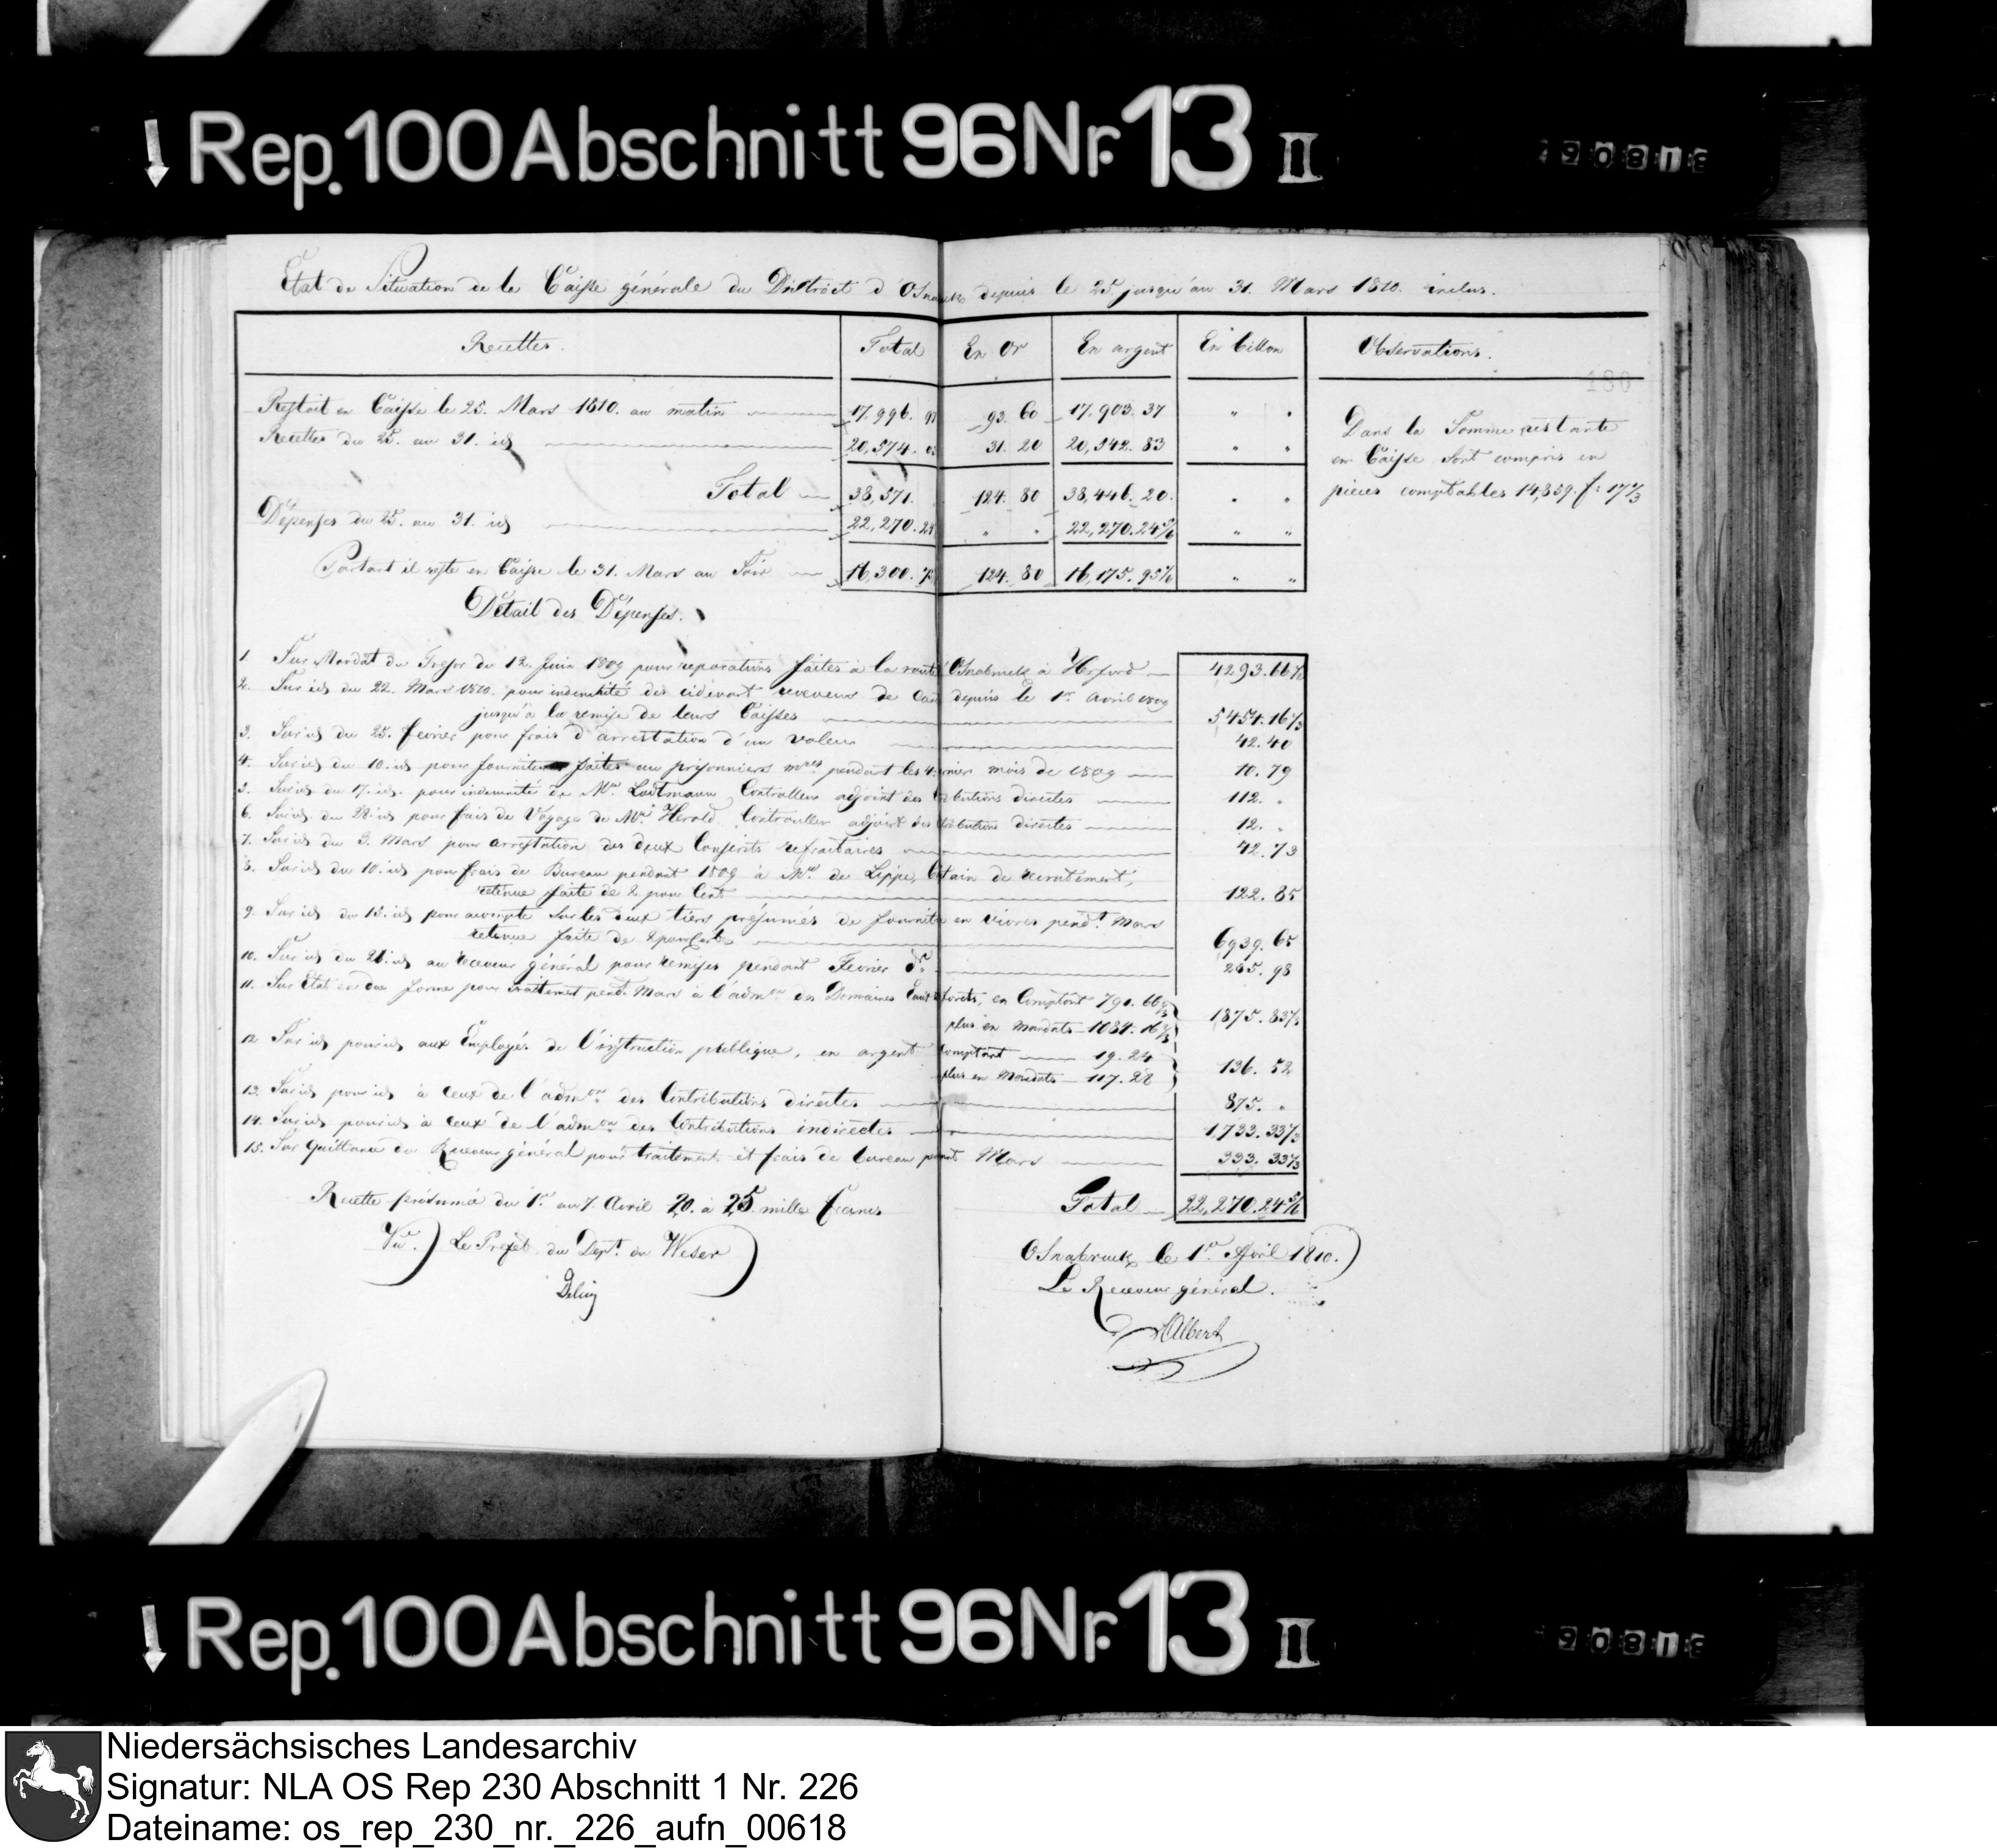 Rep. 100 Abschnitt 96 Nr. 13 II
Etat de Situation de la Caisse générale du District d'Osnabruck depuis le 25 jusqu'au 31. Mars 1810. inclus.
Recettes. Total En Or En argent En billon Observations.
180
Restoit en Caisse le 25. Mars 1810. au matin 17,996. 97 93. 60 17,903. 37 " "
Recettes du 25. au 31. id 20,574. 03 31. 20 20,542. 83 " "
Total 38,571. 124. 80 38,446. 20. " "
Dépenses du 25. au 31. id 22,270. 24 " " 22,270. 24 5/6 " "
Partant il reste en Caisse le 31. Mars au Soir 16,300. 75 124. 80 16,175. 95 1/6 " "
Dans la Somme restante
en Caisse sont compris en
pièces comptables 14,859. f. 17 1/3
Détail des Dépenses.
1. Sur Mandat du Tresor du 12. Juin 1809 pour reparations faites à la route Osnabruck à Herford 4293. 66 2/3
2. Sur id du 22. Mars 1810. pour indemnité des cidevant receveurs de depuis le 1er Avril 1809
jusqu'à la remise de leurs Caisses 5454. 16 2/3
3. Sur id du 25. fevrier pour frais d'arrestation d'un voleur 42. 40
4. Sur id du 10. id pour fournitures faites aux prisonniers pendant les 4 mois de 1809 10. 79
5. Sur id du 17. id. pour indemnité de Mr. Lodtmann, Controlleur adjoint des Contributions directes 112. "
6. Sur id du 28. id pour frais de Voyage de Mr. Herold Controlleur adjoint des Contributions directes 12. "
7. Sur id du 3. Mars pour arrestation des deux Conscrits refractaires 42. 73
8. Sur id du 10. id pour frais de Bureau pendant 1809 à Mr. de Lippe, Capitain de recrutement,
retenue faite de 2 pour Cent 122. 85
9. Sur id du 15. id pour acompte sur les deux tiers présumés de fourniture en vivres pendt. Mars
retenue faite de 2 pour Cent 6939. 65
10. Sur id du 21. id au receveur général pour remises pendant Fevrier dr. 265. 98
11. Sur Etat en due forme pour traitement pendt. Mars à l'admon. des Domaines Eaux & forets, en Comptant 791. 66 2/3
plus en Mandats 1084. 16 2/3 1875. 83 1/3
12. Sur id pour id aux Employés de l'instruction publique, en argent Comptant 19. 24
plus en Mandats 117. 28 136. 52
13. Sur id pour id à ceux de l'admon. des Contributions directes 875. "
14. Sur id pour id à ceux de l'admon des Contributions indirectes 1,733. 33 1/3
15. Sur Quittance du Receveur général pour traitement et frais de bureau pendant Mars 333. 33 1/3
Total 22,270. 24 5/6
Recette présumée du 1r. au 7. Avril 20. à 25 mille francs
Vu.) Le Prefet du Dept. du Weser
Osnabruck le 1er April 1810.
Le Receveur général.
Albert
Rep. 100 Abschnitt 96 Nr. 13 II
Niedersächsisches Landesarchiv
Signatur: NLA OS Rep 230 Abschnitt 1 Nr. 226
Dateiname: os_rep_230_nr._226_aufn_00618